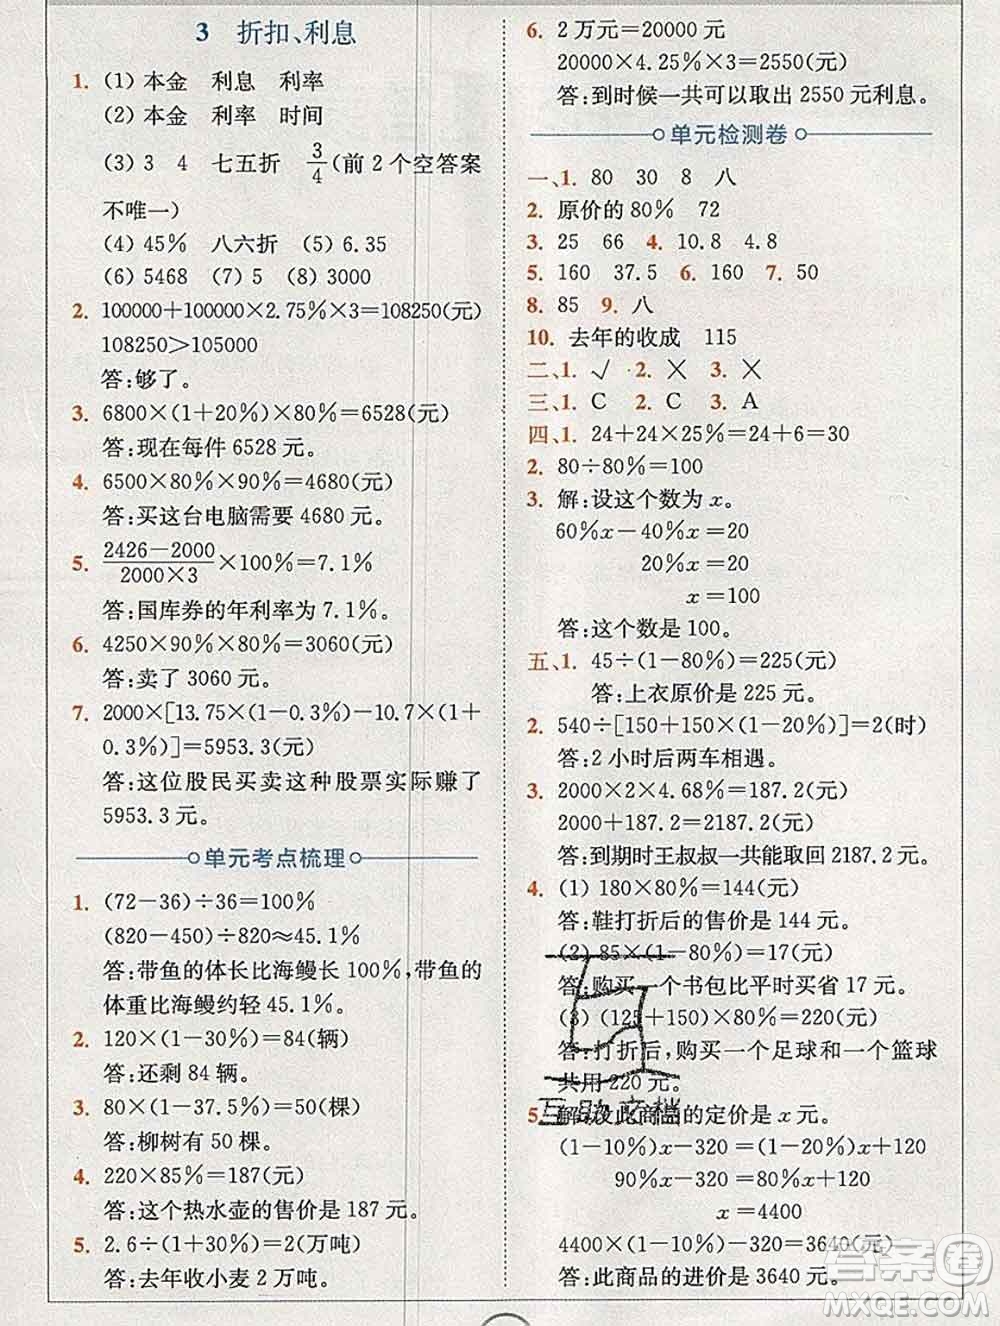 3 折扣、利息
1. (1) 本金 利息 利率
(2) 本金 利率 时间
(3) 3 4 七五折 3/4 (前 2 个空答案
不唯一)
(4) 45% 八六折 (5) 6.35
(6) 5468 (7) 5 (8) 3000
2. 100000+100000×2.75%×3=108250(元)
108250>105000
答:够了。
3. 6800×(1+20%)×80%=6528(元)
答:现在每件 6528 元。
4. 6500×80%×90%=4680(元)
答:买这台电脑需要 4680 元。
5. (2426-2000)/(2000×3)×100%=7.1%
答:国库券的年利率为 7.1%。
6. 4250×90%×80%=3060(元)
答:卖了 3060 元。
7. 2000×[13.75×(1-0.3%)-10.7×(1+
0.3%)]=5953.3(元)
答:这位股民买卖这种股票实际赚了
5953.3 元。
单元考点梳理
1. (72-36)÷36=100%
(820-450)÷820≈45.1%
答:带鱼的体长比海鳗长 100%,带鱼的
体重比海鳗约轻 45.1%。
2. 120×(1-30%)=84(辆)
答:还剩 84 辆。
3. 80×(1-37.5%)=50(棵)
答:柳树有 50 棵。
4. 220×85%=187(元)
答:这个热水壶的售价是 187 元。
5. 2.6÷(1+30%)=2(万吨)
答:去年收小麦 2 万吨。
6. 2 万元=20000 元
20000×4.25%×3=2550(元)
答:到时候一共可以取出 2550 元利息。
单元检测卷
一、1. 80 30 8 八
2. 原价的 80% 72
3. 25 66 4. 10.8 4.8
5. 160 37.5 6. 160 7. 50
8. 85 9. 八
10. 去年的收成 115
二、1. √ 2. × 3. ×
三、1. C 2. C 3. A
四、1. 24+24×25%=24+6=30
2. 80÷80%=100
3. 解:设这个数为 x。
60%x-40%x=20
20%x=20
x=100
答:这个数是 100。
五、1. 45÷(1-80%)=225(元)
答:上衣原价是 225 元。
2. 540÷[150+150×(1-20%)]=2(时)
答:2 小时后两车相遇。
3. 2000×2×4.68%=187.2(元)
2000+187.2=2187.2(元)
答:到期时王叔叔一共能取回 2187.2 元。
4. (1) 180×80%=144(元)
答:鞋打折后的售价是 144 元。
(2) 85×(1-80%)=17(元)
答:购买一个书包比平时买省 17 元。
(3) (125+150)×80%=220(元)
答:打折后,购买一个足球和一个篮球
共用 220 元。
5. 解:设此商品的定价是 x 元。
(1-10%)x-320=(1-20%)x+120
90%x-320=80%x+120
x=4400
4400×(1-10%)-320=3640(元)
答:此商品的进价是 3640 元。
互助文档
答案圈
MXQE.COM